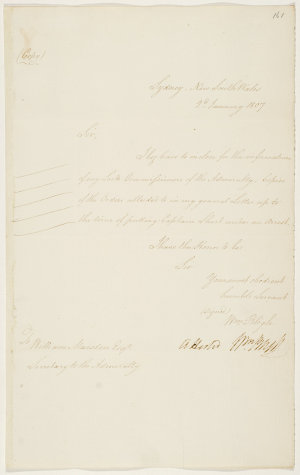 161
(Copy)
Sydney, New South Wales
2d. January 1807
Sir,
I beg leave to enclose for the information
of my Lords Commissioners of the Admiralty Copies
of the Orders alluded to in my general Letter up to
the time of putting Captain Short under an arrest.
I have the Honor to be
Sir
Your most obedient
humble Servant
signed
Wm. Bligh
To
William Marsden Esqr.
Secretary to the Admiralty
Wm Bligh